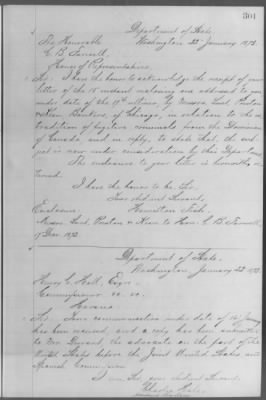 301
Department of State,
Washington 22 January 1873.
The Honorable
C. B. Farwell,
House of Representatives.
Sir: I have the honor to acknowledge the receipt of your
letter of the 18th instant enclosing one addressed to you
under date of the 17th ultimo, by Messrs. Lunt, Preston
& Kean, Bankers, of Chicago, in relation to the ex-
tradition of fugitive criminals from the Dominion
of Canada and in reply, to state that the sub-
ject is now under consideration by this Department.
The enclosure to your letter is herewith re-
turned.
I have the honor to be, Sir,
Your obedient Servant,
Hamilton Fish.
Enclosure:
Messrs. Lunt, Preston & Kean to Hon. C. B. Farwell,
17 Dec. 1872.
Department of State.
Washington, January 22 1873.
Henry C. Hall, Esqre
Havana
Sir: Your communication under date of 14 January
has been received, and a copy has been submitted
to Mr. Durant, the advocate on the part of the
United States before the Joint United States and
Spanish Commission.
I am, Sir, your obedient Servant,
Charles Hale,